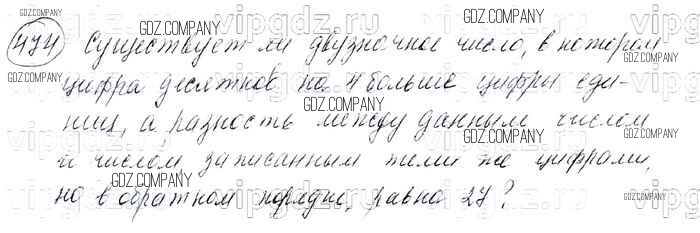 474 Существует ли двузначное число, в котором
цифра десятков на 4 больше цифры еди-
ниц, а разность между данным числом
и числом, записанным теми же цифрами,
но в обратном порядке, равна 27?
GDZ.COMPANY
GDZ.COMPANY
GDZ.COMPANY
GDZ.COMPANY
GDZ.COMPANY
GDZ.COMPANY
GDZ.COMPANY
GDZ.COMPANY
GDZ.COMPANY
GDZ.COMPANY
vipgdz.ru